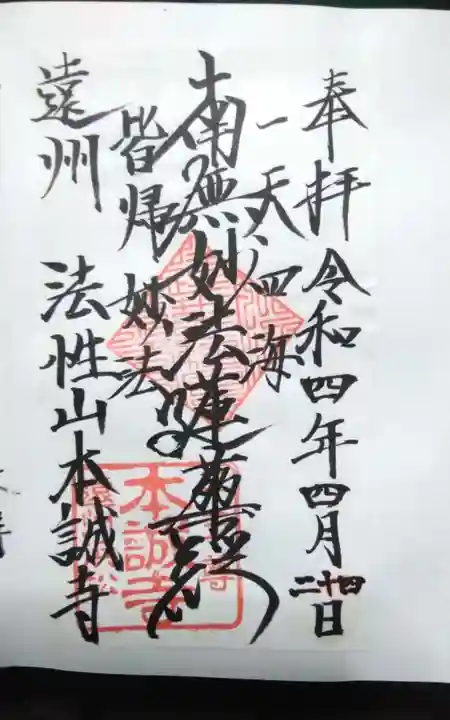 奉拝 令和四年四月二十四日
一天四海
南無妙法蓮華経
皆帰妙法
遠州 法性山本誠寺
本誠寺